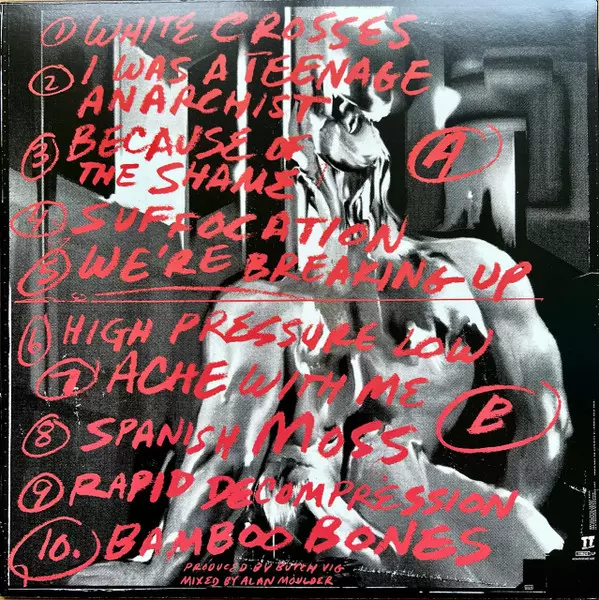 1 WHITE CROSSES
2 I WAS A TEENAGE
ANARCHIST
3 BECAUSE OF
THE SHAME
A
4 SUFFOCATION
5 WE'RE BREAKING UP
6 HIGH PRESSURE LOW
7 ACHE WITH ME
B
8 SPANISH MOSS
9 RAPID DECOMPRESSION
10. BAMBOO BONES
PRODUCED BY BUTCH VIG
MIXED BY ALAN MOULDER